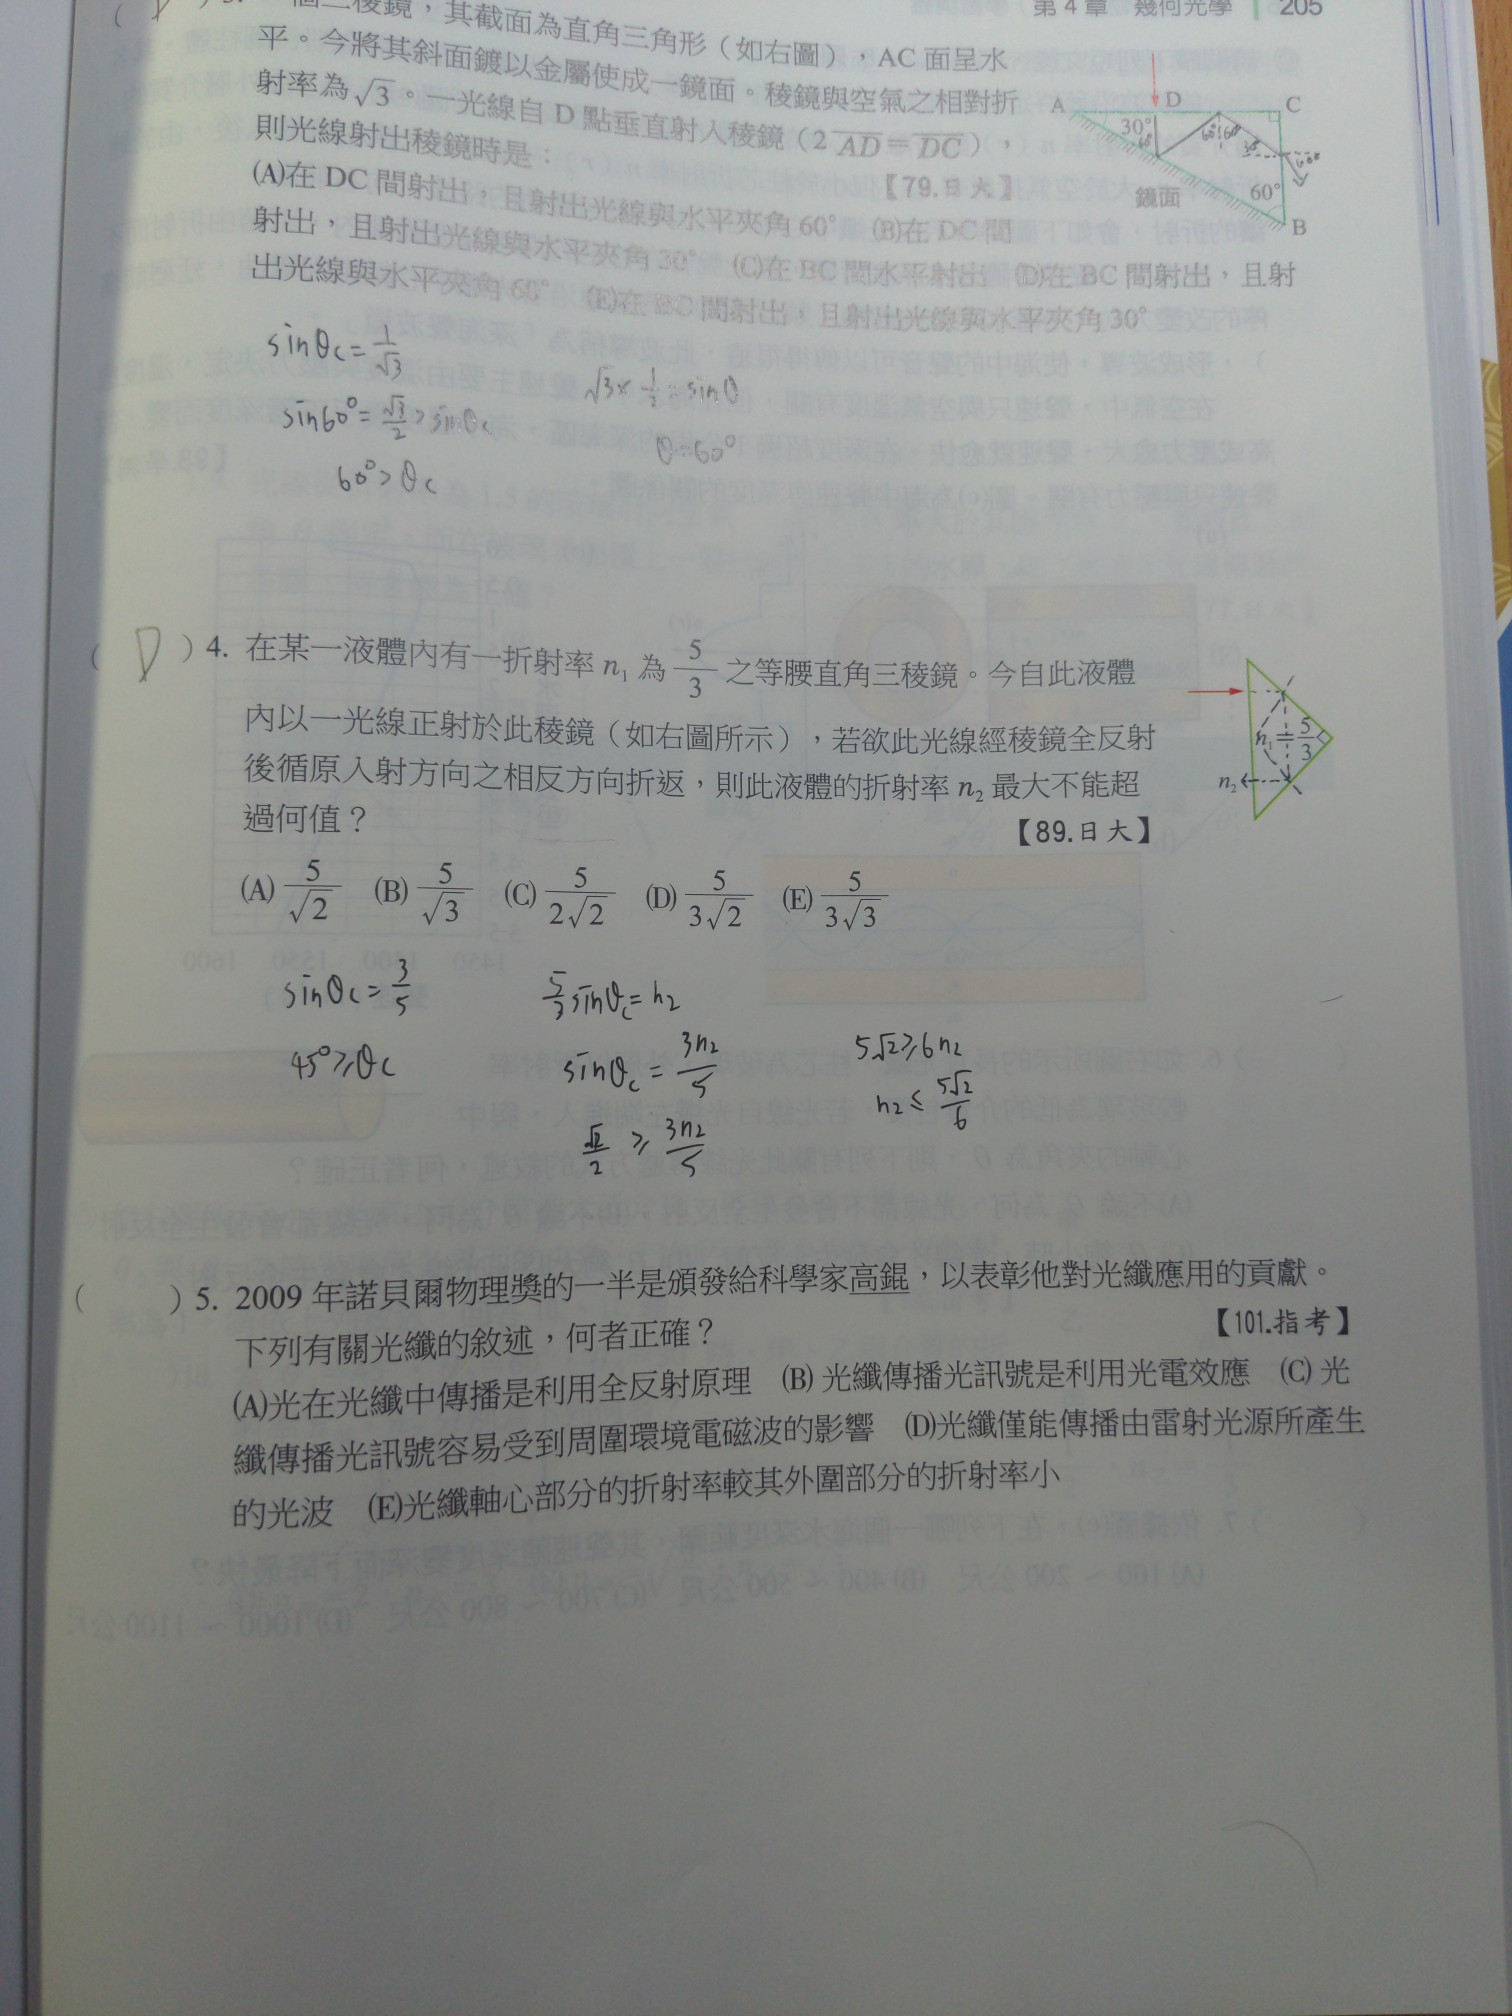 第4章 幾何光學 205
個三稜鏡，其截面為直角三角形（如右圖），AC 面呈水
平。今將其斜面鍍以金屬使成一鏡面。稜鏡與空氣之相對折
射率為√3。一光線自 D 點垂直射入稜鏡（2AD=DC），
則光線射出稜鏡時是：
【79.日大】
(A)在 DC 間射出，且射出光線與水平夾角 60° (B)在 DC 間
射出，且射出光線與水平夾角 30° (C)在 BC 間水平射出 (D)在 BC 間射出，且射
出光線與水平夾角 60° (E)在 BC 間射出，且射出光線與水平夾角 30°
A D C
30° 60° 60°
鏡面 60°
B
sinθc=1/√3
sin60°=√3/2>sinθc
60°>θc
√3×1/2=sinθ
θ=60°
( D )4. 在某一液體內有一折射率 n₁ 為 5/3 之等腰直角三稜鏡。今自此液體
內以一光線正射於此稜鏡（如右圖所示），若欲此光線經稜鏡全反射
後循原入射方向之相反方向折返，則此液體的折射率 n₂ 最大不能超
過何值？ 【89.日大】
n₁=5/3
n₂
(A) 5/√2 (B) 5/√3 (C) 5/2√2 (D) 5/3√2 (E) 5/3√3
sinθc=3/5
45°≥θc
5/3 sinθc=n₂
sinθc=3n₂/5
√2/2 ≥ 3n₂/5
5√2≥6n₂
n₂≤5√2/6
( )5. 2009 年諾貝爾物理獎的一半是頒發給科學家高錕，以表彰他對光纖應用的貢獻。
下列有關光纖的敘述，何者正確？ 【101.指考】
(A)光在光纖中傳播是利用全反射原理 (B) 光纖傳播光訊號是利用光電效應 (C) 光
纖傳播光訊號容易受到周圍環境電磁波的影響 (D)光纖僅能傳播由雷射光源所產生
的光波 (E)光纖軸心部分的折射率較其外圍部分的折射率小